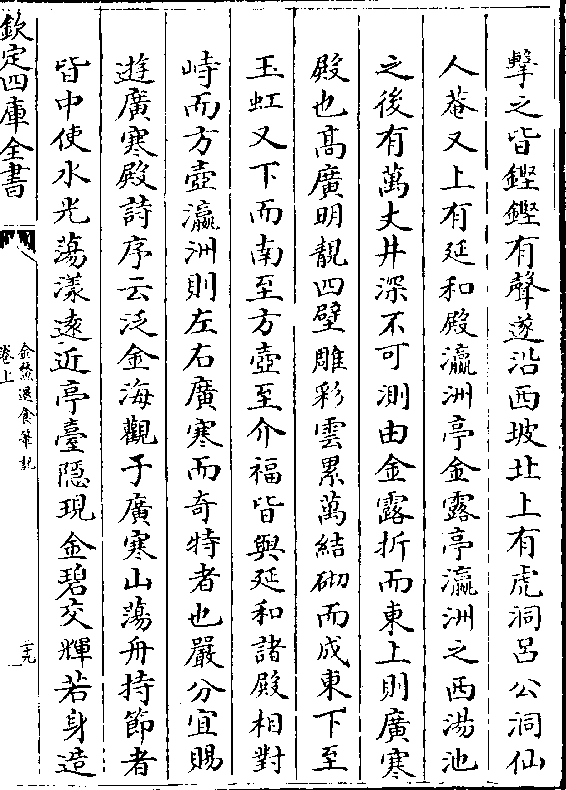 擊之皆鏗鏗有聲遂沿西坡北上有虎洞呂公洞仙
人菴又上有延和殿瀛洲亭金露亭瀛洲之西湯池
之後有萬丈井深不可測由金露折而東上則廣寒
殿也髙廣明靚四壁雕彩雲累萬結砌而成東下至
玉虹又下而南至方壺至介福皆與延和諸殿相對
峙而方壺瀛洲則左右廣寒而奇特者也嚴分宜賜
遊廣寒殿詩序云泛金海觀于廣寒山蕩舟持節者
皆中使水光蕩漾逺近亭臺隠現金碧交輝若身造
欽定四庫全書
金鰲退食筆記
卷上
二九